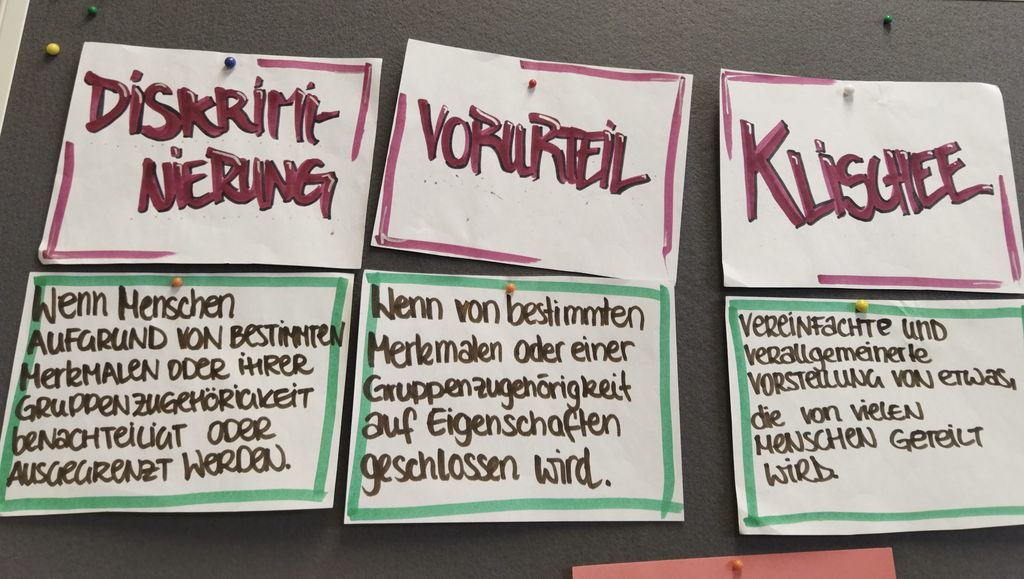 DISKRIMI-
NIERUNG
Wenn Menschen
AUFGRUND VON BESTIMMTEN
MERKMALEN ODER IHRER
GRUPPENZUGEHÖRIGKEIT
BENACHTEILIGT ODER
AUSGEGRENZT WERDEN.
VORURTEIL
Wenn von bestimmten
Merkmalen oder einer
Gruppenzugehörigkeit
auf Eigenschaften
geschlossen wird.
KLISCHEE
VEREINFACHTE UND
verallgemeinerte
VORSTELLUNG VON ETWAS,
die von vielen
MENSCHEN GETEILT
WIRD.